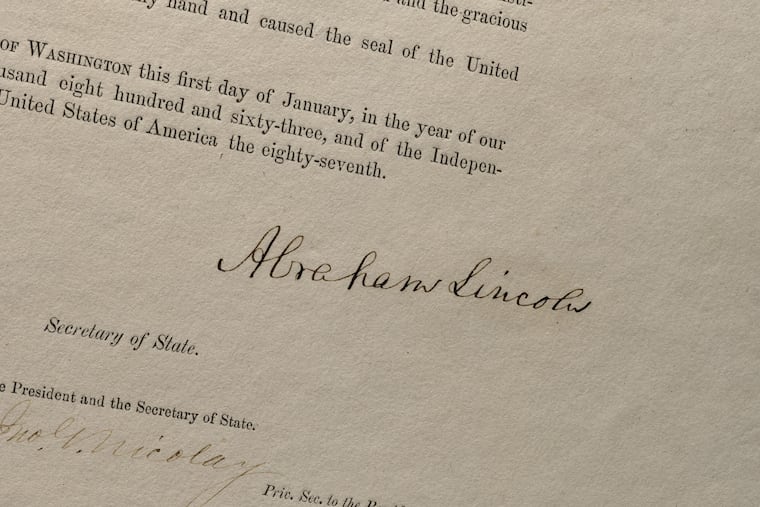 and the gracious
hand and caused the seal of the United
OF WASHINGTON this first day of January, in the year of our
eight hundred and sixty-three, and of the Indepen-
United States of America the eighty-seventh.
Abraham Lincoln
Secretary of State.
President and the Secretary of State.
Jno. G. Nicolay
Priv. Sec. to the